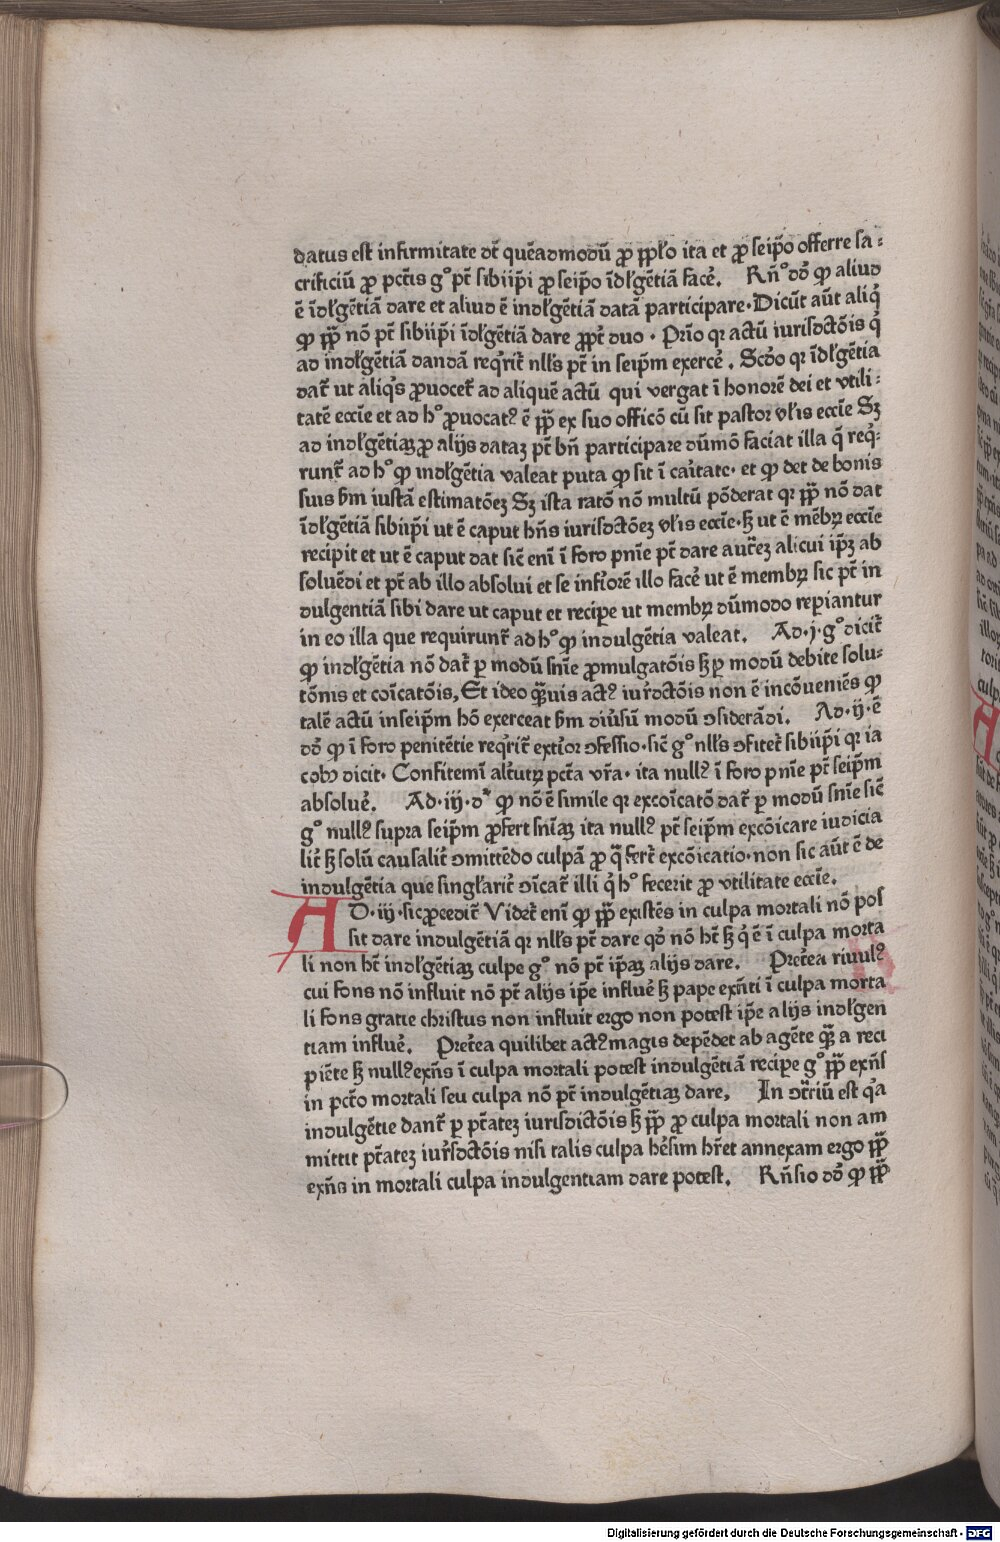 datus est infirmitate dꝫ quēadmodū ꝓ ppło ita et ꝓ seip̄o offerre sa⸗
crificiū ꝓ pctīs gº pt̄ sibiip̄i ꝓ seip̄o īdłgētiā facē. Rn̄º dō ꝙ aliud
ē īdłgētiā dare et aliud ē indłgētiā datā participare·Dicūt aūt aliq̇
ꝙ pp̄ nō pt̄ sibiip̄i īdłgētiā dare ꝓpt̄ duo · Prīo qr actū iurisdctōis q̇
ad indłgētiā dandā req̇rit̄ nłłs pt̄ in seip̄m exercē. Scdo qr īdłgētia
dat̄ ut aliq̇s ꝓuocet̄ ad aliquē actū qui vergat ī honorē dei et vtili⸗
tatē eccīe et ad hº ꝓuocatꝰ ē pp̄ ex suo officō cū sit pastor vłis eccīe Sꝫ
ad indłgētiaꝫ ꝓ alijs dataꝫ pt̄ bn̄ participare dūmō faciat illa q̄ req̇⸗
runt̄ ad hº ꝙ indłgētia valeat puta ꝙ sit ī caītate· et ꝙ det de bonis
suis ẜm iustā estimatōeꝫ Sꝫ ista ratō nō multū pōderat qr pp̄ nō dat
īdłgētiā sibiip̄i ut ē caput hn̄s iurisdctōeꝫ vłis eccīe·ẜꝫ ut ē mēbꝝ eccīe
recipit et ut ē caput dat sic̄ enī ī foro pnīe pt̄ dare auct̄eꝫ alicui ip̄ꝫ ab
soluēdi et pt̄ ab illo absolui et se inf̄iorē illo facē ut ē membꝝ sic pt̄ in
dulgentiā sibi dare ut caput et recipe ut membꝝ dūmodo repiantur
in eo illa que requirunt̄ ad hº ꝙ indulgētia valeat. Ad·j·gº dicit̄
ꝙ indłgētia nō dat̄ p modū sn̄īe ꝓmulgatōis ẜꝫ p modū debite solu⸗
tōnis et coīcatōis, Et ideo qꝫuis actꝰ iur̄dctōis non ē incōueniēs ꝙ
talē actū inseip̄m hō exerceat ẜm diūsū modū ɔsiderādi. Ad·ij·ē
dō ꝙ ī foro penitētie req̇rit̄ ext̄ior ɔfessio·sic̄ gº nłłs ɔfitet̄ sibiip̄i qr ia
cob dicit· Confitemī alt̄utꝝ pctā vr̄a· ita nullꝰ ī foro pnīe pt̄ seip̄m
absoluē. Ad·iij·d ꝙ nō ē simile qr excoīcatō dat̄ p modū sn̄īe sic̄
gº nullꝰ supra seip̄m ꝓfert sn̄iaꝫ ita nullꝰ pt̄ seip̄m excōicare iudicia
lit̄ ẜꝫ solū causalit̄ ɔmittēdo culpā ꝓ q̄ fert̄ excōicatio·non sic aūt ē de
indulgētia que singłarit̄ ɔīcat̄ illi q̇ hº fecerit ꝓ vtilitate eccīe.
AD·iij·sic ꝓcedit̄ Videt̄ enī ꝙ pp̄ existēs in culpa mortali nō pos
sit dare indulgētiā qr nłłs pt̄ dare qd̄ nō ht̄ ẜꝫ q̇ ē ī culpa morta
li non ht̄ indłgētiaꝫ culpe gº nō pt̄ ip̄aꝫ alijs dare. Pret̄ea riuulꝰ
cui fons nō influit nō pt̄ alijs ip̄e influē ẜꝫ pape exn̄ti ī culpa morta
li fons gratie christus non influit ergo non potest ip̄e alijs indłgen
tiam influē. Pret̄ea quilibet actꝰ magis depēdet ab agēte qꝫ a reci
piēte ẜꝫ nullꝰ exn̄s ī culpa mortali potest indulgētiā recipe gº pp̄ exn̄s
in pctō mortali seu culpa nō pt̄ indulgētiaꝫ dare, In ɔt̄riū est q̇a
indulgētie dant̄ p pt̄ateꝫ iurisdictōis ẜꝫ pp̄ ꝓ culpa mortali non am
mittit pt̄ateꝫ iur̄sdctōis nisi talis culpa hēsim hr̄et annexam ergo pp̄
exn̄s in mortali culpa indulgentiam dare potest. Rn̄sio dō ꝙ pp̄
Digitalisierung gefördert durch die Deutsche Forschungsgemeinschaft - DFG